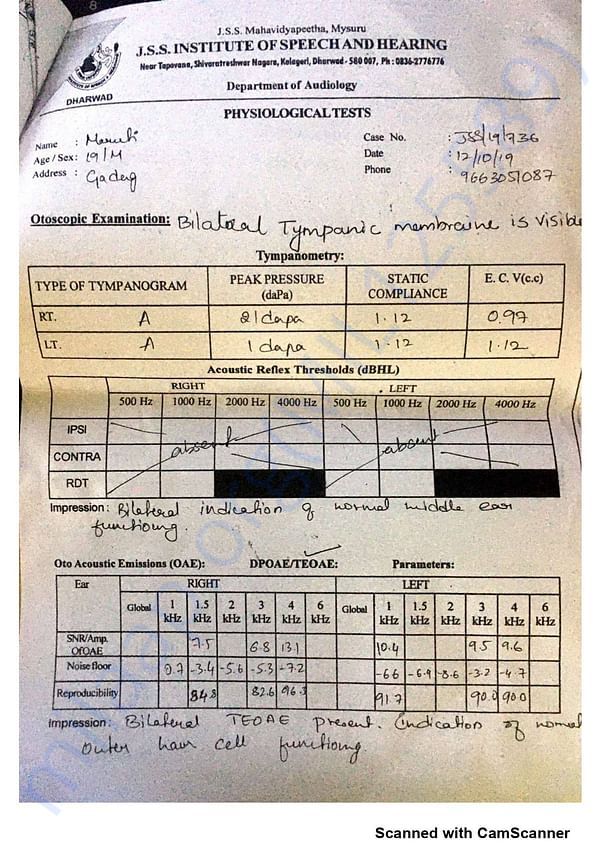 8
J.S.S. Mahavidyapeetha, Mysuru
J.S.S. INSTITUTE OF SPEECH AND HEARING
Near Tapovana, Shivaratreshwar Nagara, Kelageri, Dharwad - 580 007, Ph : 0836-2776776
DHARWAD
Department of Audiology
PHYSIOLOGICAL TESTS
Name : Maruti Case No. : JSS/19/736
Age / Sex : 19/M Date : 12/10/19
Address : Gadag Phone : 9663051087
Otoscopic Examination: Bilateral Tympanic membrane is visible
Tympanometry:
TYPE OF TYMPANOGRAM PEAK PRESSURE (daPa) STATIC COMPLIANCE E. C. V(c.c)
RT. A 21 dapa 1.12 0.97
LT. A 1 dapa 1.12 1.12
Acoustic Reflex Thresholds (dBHL)
RIGHT LEFT
500 Hz 1000 Hz 2000 Hz 4000 Hz 500 Hz 1000 Hz 2000 Hz 4000 Hz
IPSI
absent absent
CONTRA
RDT
Impression: Bilateral indication of normal middle ear
functioning.
Oto Acoustic Emissions (OAE): DPOAE/TEOAE: Parameters:
Ear RIGHT LEFT
Global 1 kHz 1.5 kHz 2 kHz 3 kHz 4 kHz 6 kHz Global 1 kHz 1.5 kHz 2 kHz 3 kHz 4 kHz 6 kHz
SNR/Amp. Of OAE 7.5 6.8 13.1 10.4 9.5 9.6
Noise floor 0.7 -3.4 -5.6 -5.3 -7.2 -6.6 -6.9 -8.6 -3.2 -4.7
Reproducibility 84.8 82.6 96.3 91.7 90.0 90.0
Impression: Bilateral TEOAE present. Indication of normal
outer hair cell functioning.
Scanned with CamScanner